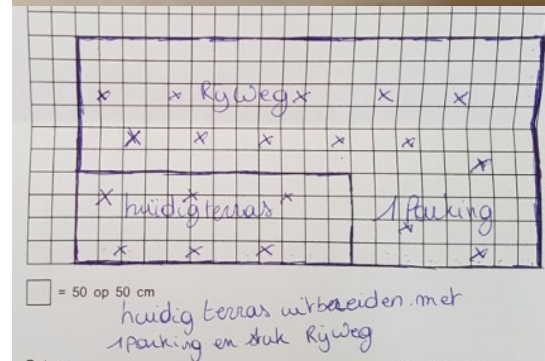 Rijweg
huidig terras
1 Parking
= 50 op 50 cm
huidig terras uitbereiden met
1 parking en stuk Rijweg